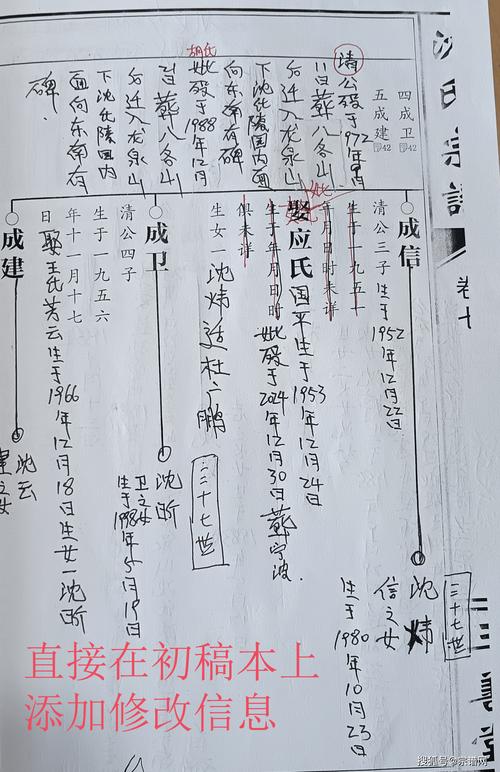 沈氏宗譜
卷十
三十七世
四成卫 42
五成建 42
清公殁于1972年9月
11日葬八各山
后迁入龙泉山
下沈氏陵园内面
向东南有碑
胡氏
妣殁于1988年12月
21日葬八各山
后迁入龙泉山
下沈氏陵园内
面向东南有
碑.
成信
清公三子生于1952年12月22日
生于一九五一
年月日时未详
妣
娶应氏国平生于1953年12月24日
生于年月日时妣殁于2024年12月30日葬宁波.
俱未详
生女一沈炜适杜广鹏
沈炜
信之女
生于1980年10月23日
三十七世
成卫
清公四子
生于一九五六
年十一月十七
日娶王氏芳云生于1966年12月18日生女一沈昕
沈昕
卫之女
生于1998年5月19日
成建
沈云
建之女
直接在初稿本上
添加修改信息
搜狐号@宗谱网